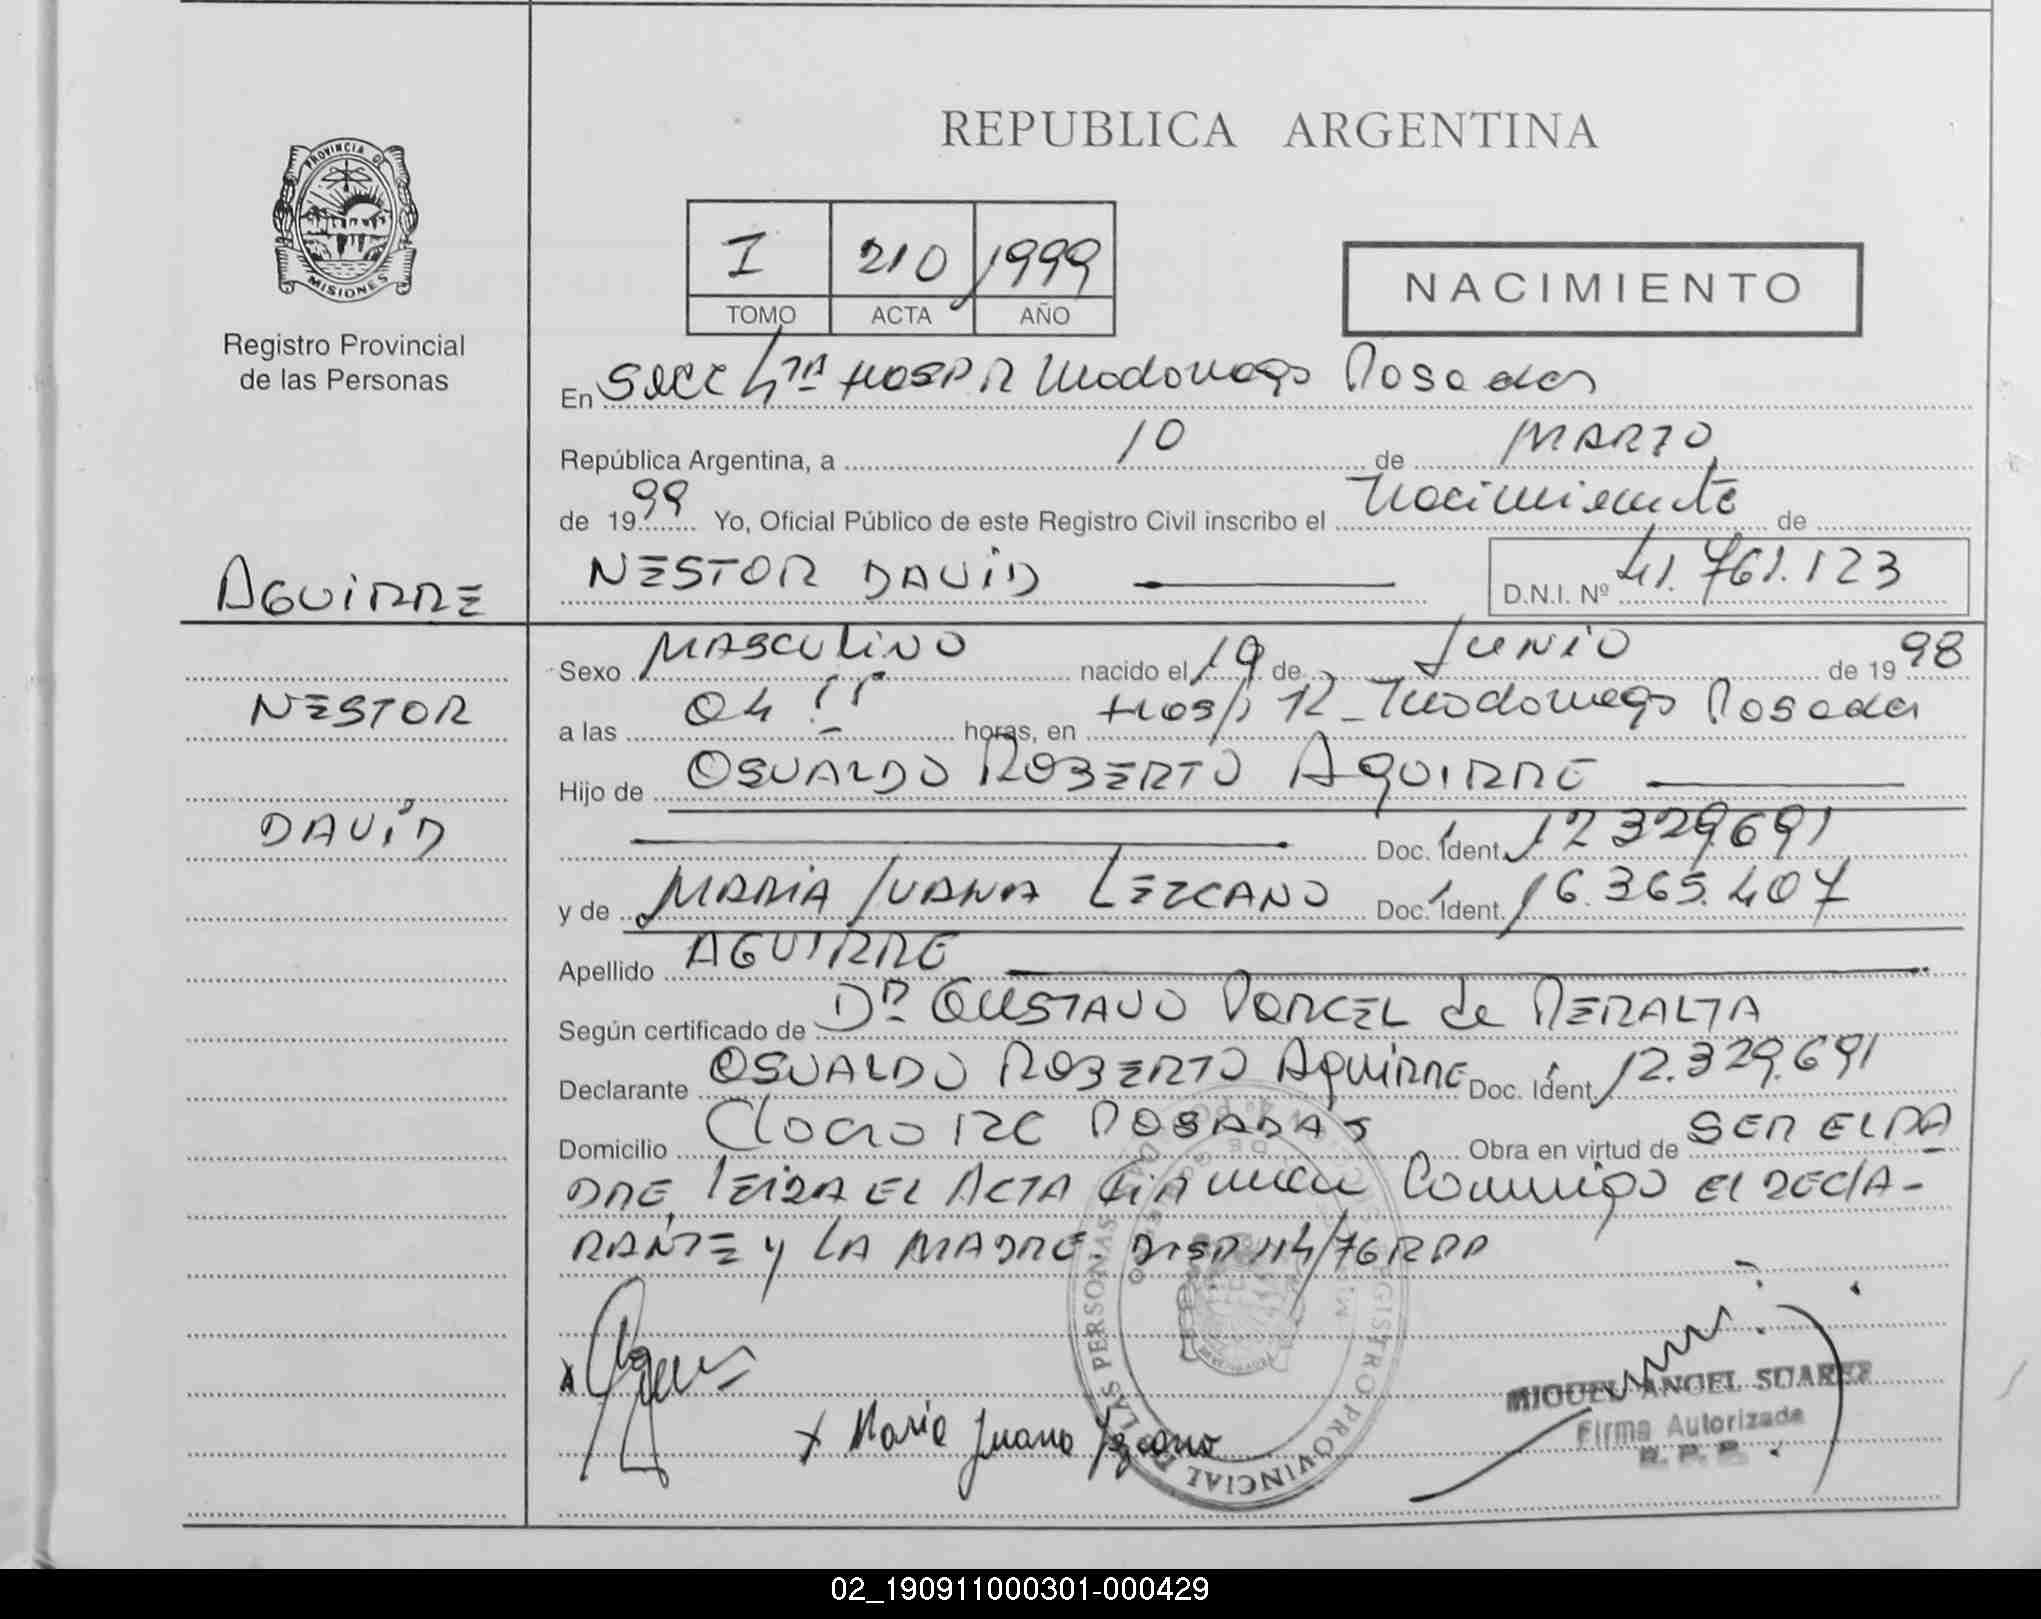 REPUBLICA ARGENTINA
PROVINCIA DE
MISIONES
Registro Provincial
de las Personas
I 210 1999
TOMO ACTA AÑO
NACIMIENTO
En Secc 4ta HOSP R Madariaga Posadas
República Argentina, a 10 de MARZO
de 1999 Yo, Oficial Público de este Registro Civil inscribo el Nacimiento de
AGUIRRE
NESTOR DAVID
D.N.I. Nº 41.761.123
Sexo MASCULINO nacido el 19 de JUNIO de 1998
NESTOR
a las 04 horas, en Hosp R Madariaga Posadas
Hijo de OSVALDO ROBERTO AGUIRRE
DAVID
Doc. Ident. 12329.691
y de MARIA JUANA LEZCANO Doc. Ident. 16.365.407
Apellido AGUIRRE
Según certificado de Dr GUSTAVO PORCEL de PERALTA
Declarante OSVALDO ROBERTO AGUIRRE Doc. Ident. 12.329.691
Domicilio POSADAS Obra en virtud de SER EL PA
DRE, LEIDA EL ACTA FIRMAN Conmigo EL DECLA-
RANTE y LA MADRE. DISP 114/76 RPP
Maria Juana Lezcano
REGISTRO PROVINCIAL DE LAS PERSONAS
MIGUEL ANGEL SUAREZ
Firma Autorizada
R. P. P.
02_190911000301-000429